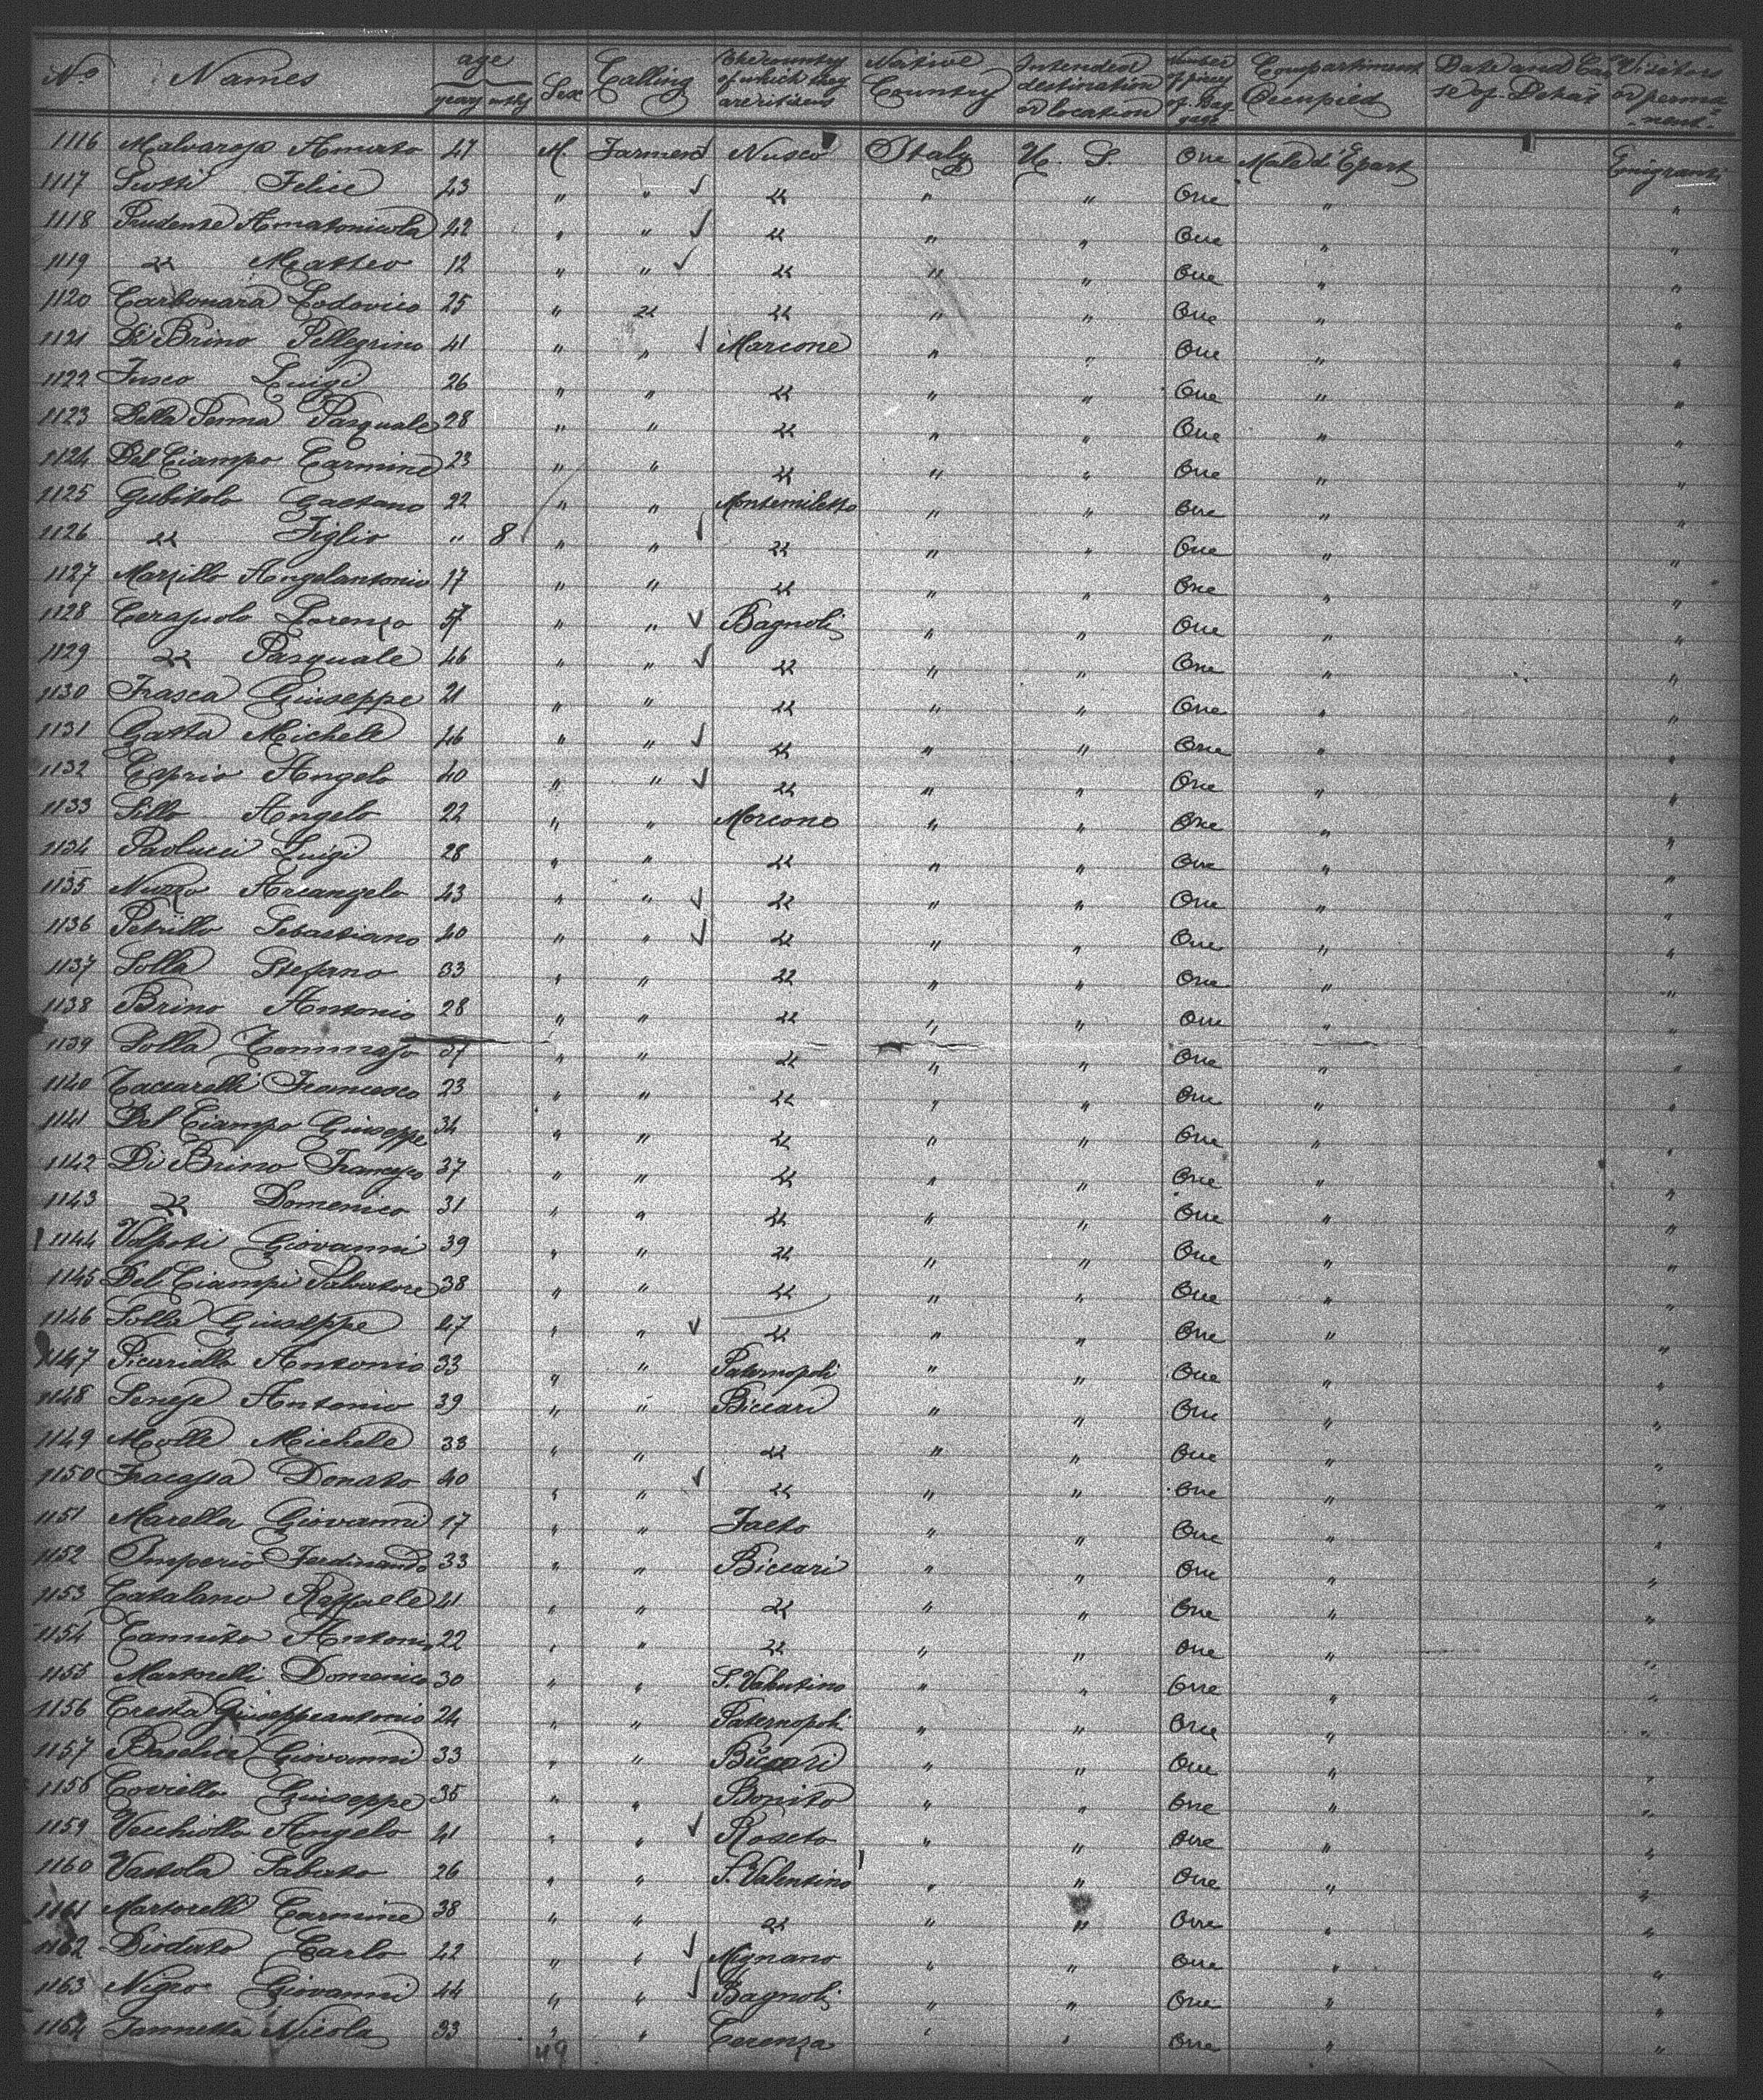 No Names age years mths Sex Calling The country of which they are citizens Native Country Intended destination or location Number of pieces of Baggage Compartment Occupied Date and Cause of Death Visitors or permanent
1116 Amato 47 M. Farmers Nusco Italy U. S. One Emigrants
1117 Felice 43 " " " " " One " "
1118 Prudente Amatonicola 42 " " " " " One " "
1119 " Matteo 12 " " " " " One " "
1120 Carbonara Lodovico 25 " " " " " One " "
1121 Di Brino Pellegrino 41 " " Marcone " " One " "
1122 Fusco Luigi 26 " " " " " One " "
1123 Della Penna Pasquale 28 " " " " " One " "
1124 Del Ciampo Carmine 23 " " " " " One " "
1125 Gubitolo Gaetano 22 " " Montemiletto " " One " "
1126 " Figlio " 8 " " " " " One " "
1127 Marzillo Angelantonio 17 " " " " " One " "
1128 Lorenzo 57 " " Bagnoli " " One " "
1129 " Pasquale 46 " " " " " One " "
1130 Frasca Giuseppe 21 " " " " " One " "
1131 Gatta Michele 46 " " " " " One " "
1132 Caprio Angelo 40 " " " " " One " "
1133 Sillo Angelo 22 " " Morcone " " One " "
1134 Paolucci Luigi 28 " " " " " One " "
1135 Nuzzo Arcangelo 43 " " " " " One " "
1136 Petrillo Sebastiano 40 " " " " " One " "
1137 Solla Stefano 33 " " " " " One " "
1138 Brino Antonio 28 " " " " " One " "
1139 Solla Tommaso 37 " " " " " One " "
1140 Zaccarelli Francesco 23 " " " " " One " "
1141 Del Ciampo Giuseppe 34 " " " " " One " "
1142 Di Brino Francesco 37 " " " " " One " "
1143 " Domenico 31 " " " " " One " "
1144 Giovanni 39 " " " " " One " "
1145 Del Ciampi Salvatore 38 " " " " " One " "
1146 Solla Giuseppe 47 " " " " " One " "
1147 Picariello Antonio 33 " " Paternopoli " " One " "
1148 Senese Antonio 39 " " Biccari " " One " "
1149 Molle Michele 33 " " " " " One " "
1150 Fracassa Donato 40 " " " " " One " "
1151 Marella Giovanni 17 " " Faeto " " One " "
1152 Imperio Ferdinando 33 " " Biccari " " One " "
1153 Catalano Raffaele 41 " " " " " One " "
1154 Cannito Antonio 22 " " " " " One " "
1155 Martorelli Domenico 30 " " S. Valentino " " One " "
1156 Cresta Giuseppeantonio 24 " " Paternopoli " " One " "
1157 Baselice Giovanni 33 " " Biccari " " One " "
1158 Coviello Giuseppe 35 " " Bonito " " One " "
1159 Vecchiollo Angelo 41 " " Roseto " " One " "
1160 Vastola Sabato 26 " " S. Valentino " " One " "
1161 Martorelli Carmine 38 " " " " " One " "
1162 Diodato Carlo 42 " " Mignano " " One " "
1163 Nigro Giovanni 44 " " Bagnoli " " One " "
1164 Iannetta Nicola 33 " " Cerenza " " One " "
49